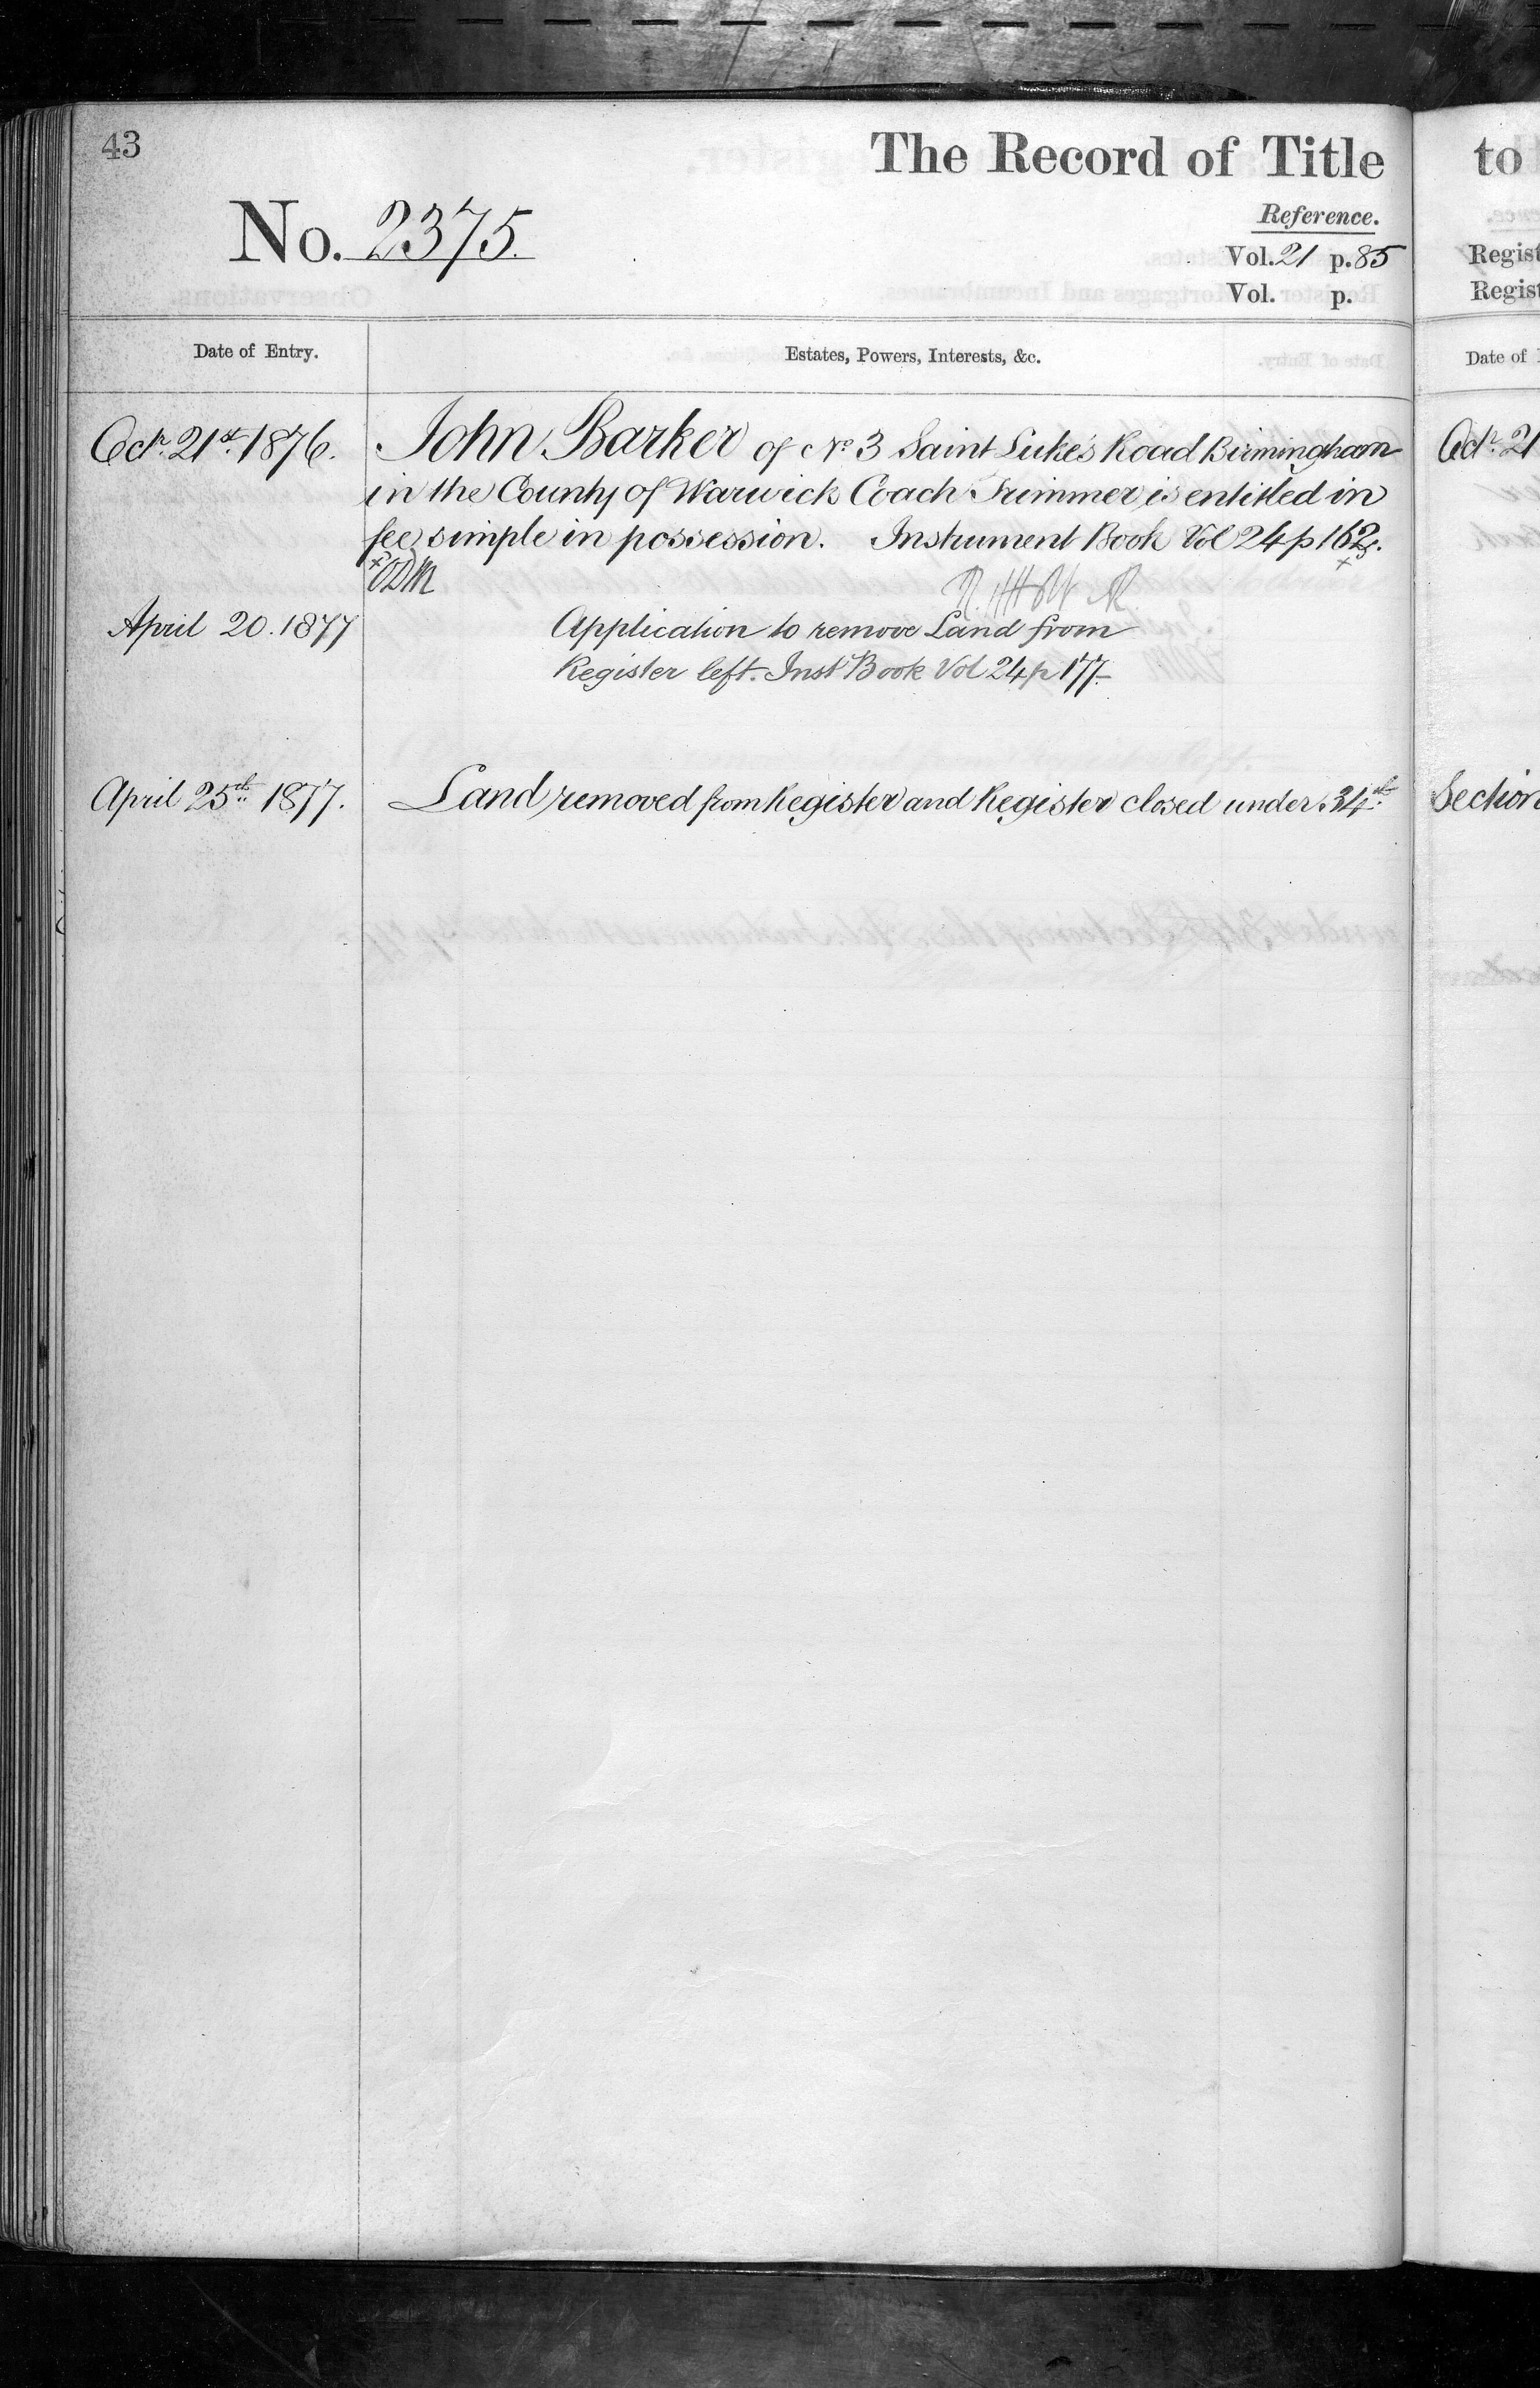 43
The Record of Title
No. 2375.
Reference.
Vol. 21 p. 85
Vol. p.
Date of Entry.
Estates, Powers, Interests, &c.
Octr. 21st. 1876.
John Barker of No 3 Saint Luke's Road Birmingham
in the County of Warwick Coach Trimmer is entitled in
fee simple in possession. Instrument Book Vol 24 p 162.
April 20. 1877
Application to remove Land from
Register left. Inst Book Vol 24 p 177
April 25th 1877.
Land removed from Register and Register closed under 34th
to
Regist
Regist
Date of
Octr. 21
Section